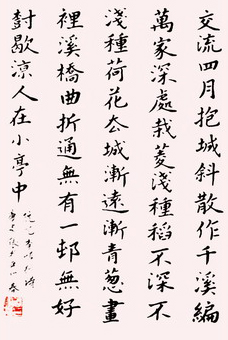 交流四月抱城斜散作千溪編
萬家深處栽菱淺種稻不深不
淺種荷花去城漸遠漸青蔥畫
裡溪橋曲折通無有一邨無好
歇涼人在小亭中